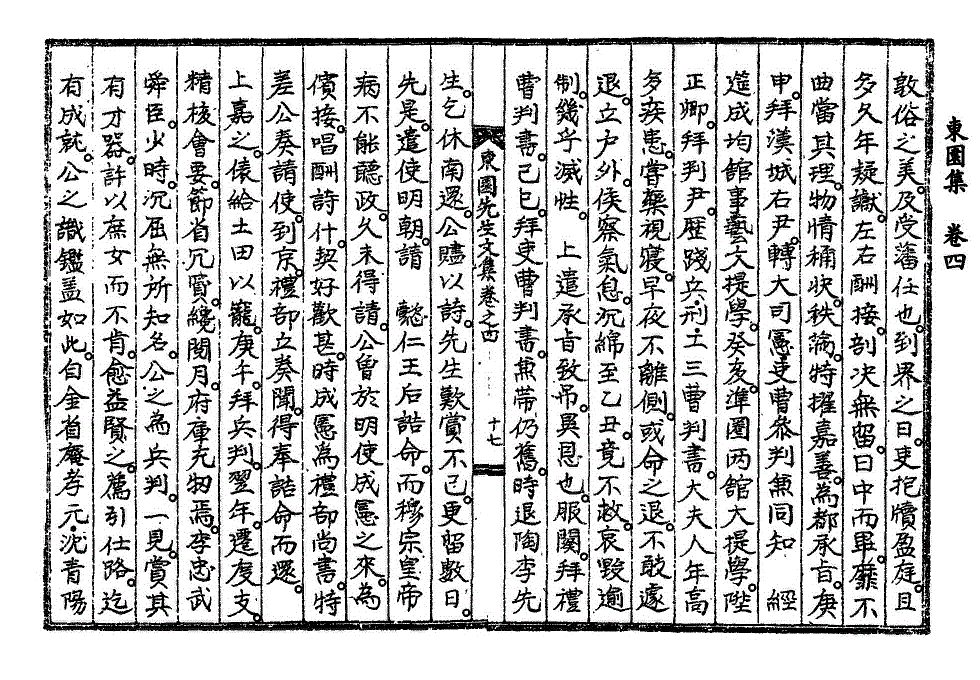 東園集　卷四
敦俗之美。及受藩任也。到界之日。吏抱牘盈庭。且
多久年疑讞。左右酬接。剖決無留。日中而畢。靡不
曲當其理。物情稱快。秩滿。特擢嘉善。爲都承旨。庚
申。拜漢城右尹。轉大司憲,吏曹參判兼同知　經
筵成均館事藝文提學。癸亥。準圈兩館大提學。陞
正卿。拜判尹。歷踐兵,刑,工三曹判書。大夫人年高
多疾患。嘗藥視寢。早夜不離側。或命之退。不敢遽
退。立戶外。俟察氣息。沉綿至乙丑。竟不救。哀毀逾
制。幾乎滅性。　上遣承旨致吊。異恩也。服闋。拜禮
曹判書。己巳。拜吏曹判書。兼帶仍舊。時退陶李先
東園先生文集卷之四　十七
生。乞休南還。公贐以詩。先生歎賞不已。更留數日。
先是。遣使明朝。請　懿仁王后誥命。而穆宗皇帝
病不能聽政。久未得請。公曾於明使成憲之來。爲
儐接。唱酬詩什。契好歡甚。時成憲爲禮部尚書。特
差公奏請使。到京。禮部立奏聞。得奉誥命而還。
上嘉之。俵給土田以寵。庚午。拜兵判。翌年。遷度支。
精核會要。節省冗賓。纔閱月。府庫充牣焉。李忠武
舜臣。少時。沉屈無所知名。公之爲兵判。一見。賞其
有才器。許以庶女而不肯。愈益賢之。薦引仕路。迄
有成就。公之識鑑盖如此。白金省菴孝元,沈青陽